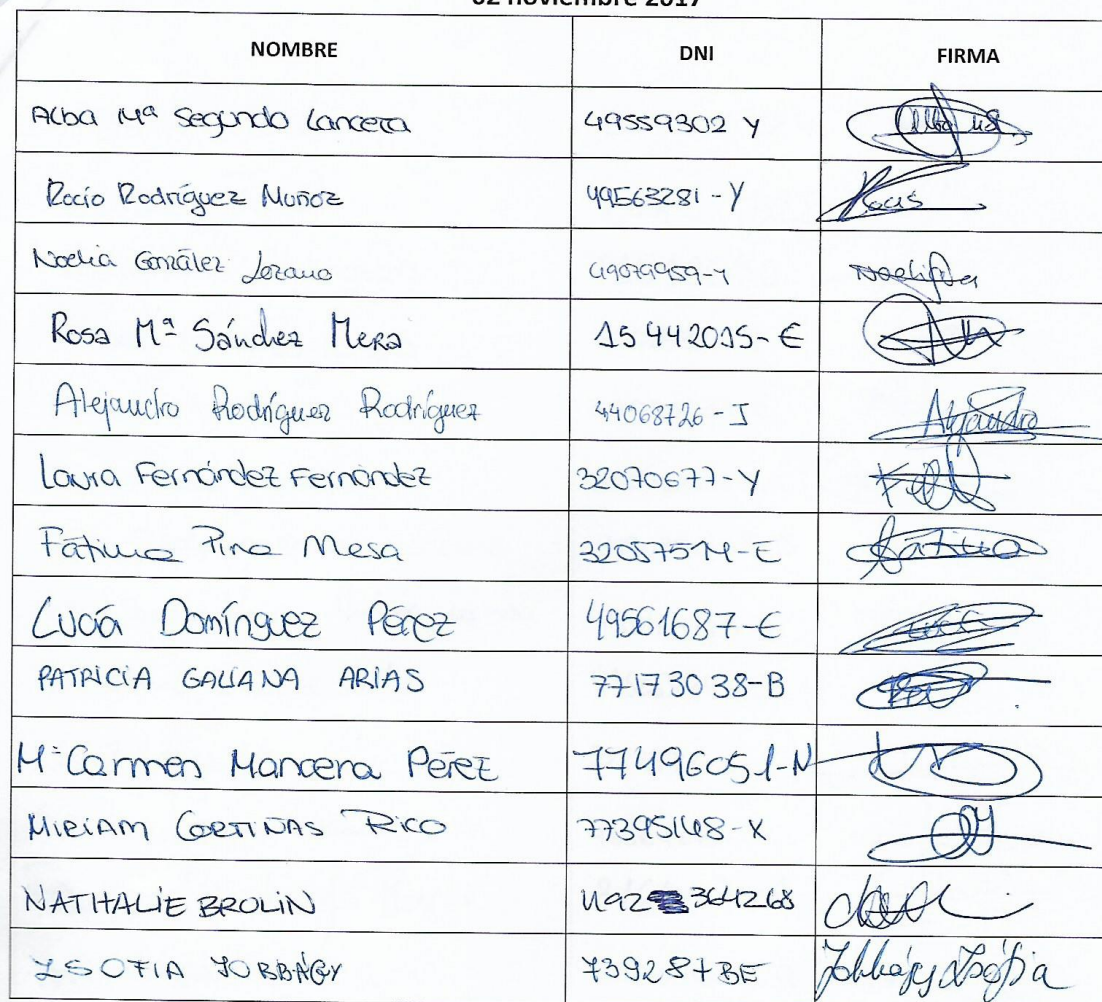 02 noviembre 2017
NOMBRE DNI FIRMA
Alba Mª Segundo Lancera 49559302 Y
Rocío Rodríguez Muñoz 49563281-Y Rocío
Noelia González Lozano 49079959-Y Noelia
Rosa Mª Sánchez Mera 15442015-E
Alejandro Rodríguez Rodríguez 44068726-J Alejandro
Laura Fernández Fernández 32070677-Y
Fátima Pina Mesa Fátima
Lucía Domínguez Pérez 49561687-E Lucía
PATRICIA GALIANA ARIAS 77173038-B
Mª Carmen Mancera Pérez 77496051-N
MIRIAM CORTIÑAS RICO 77395148-X
NATHALIE BROLIN
ZSOFIA JOBBÁGY 739287BE Jobbágy Zsófia